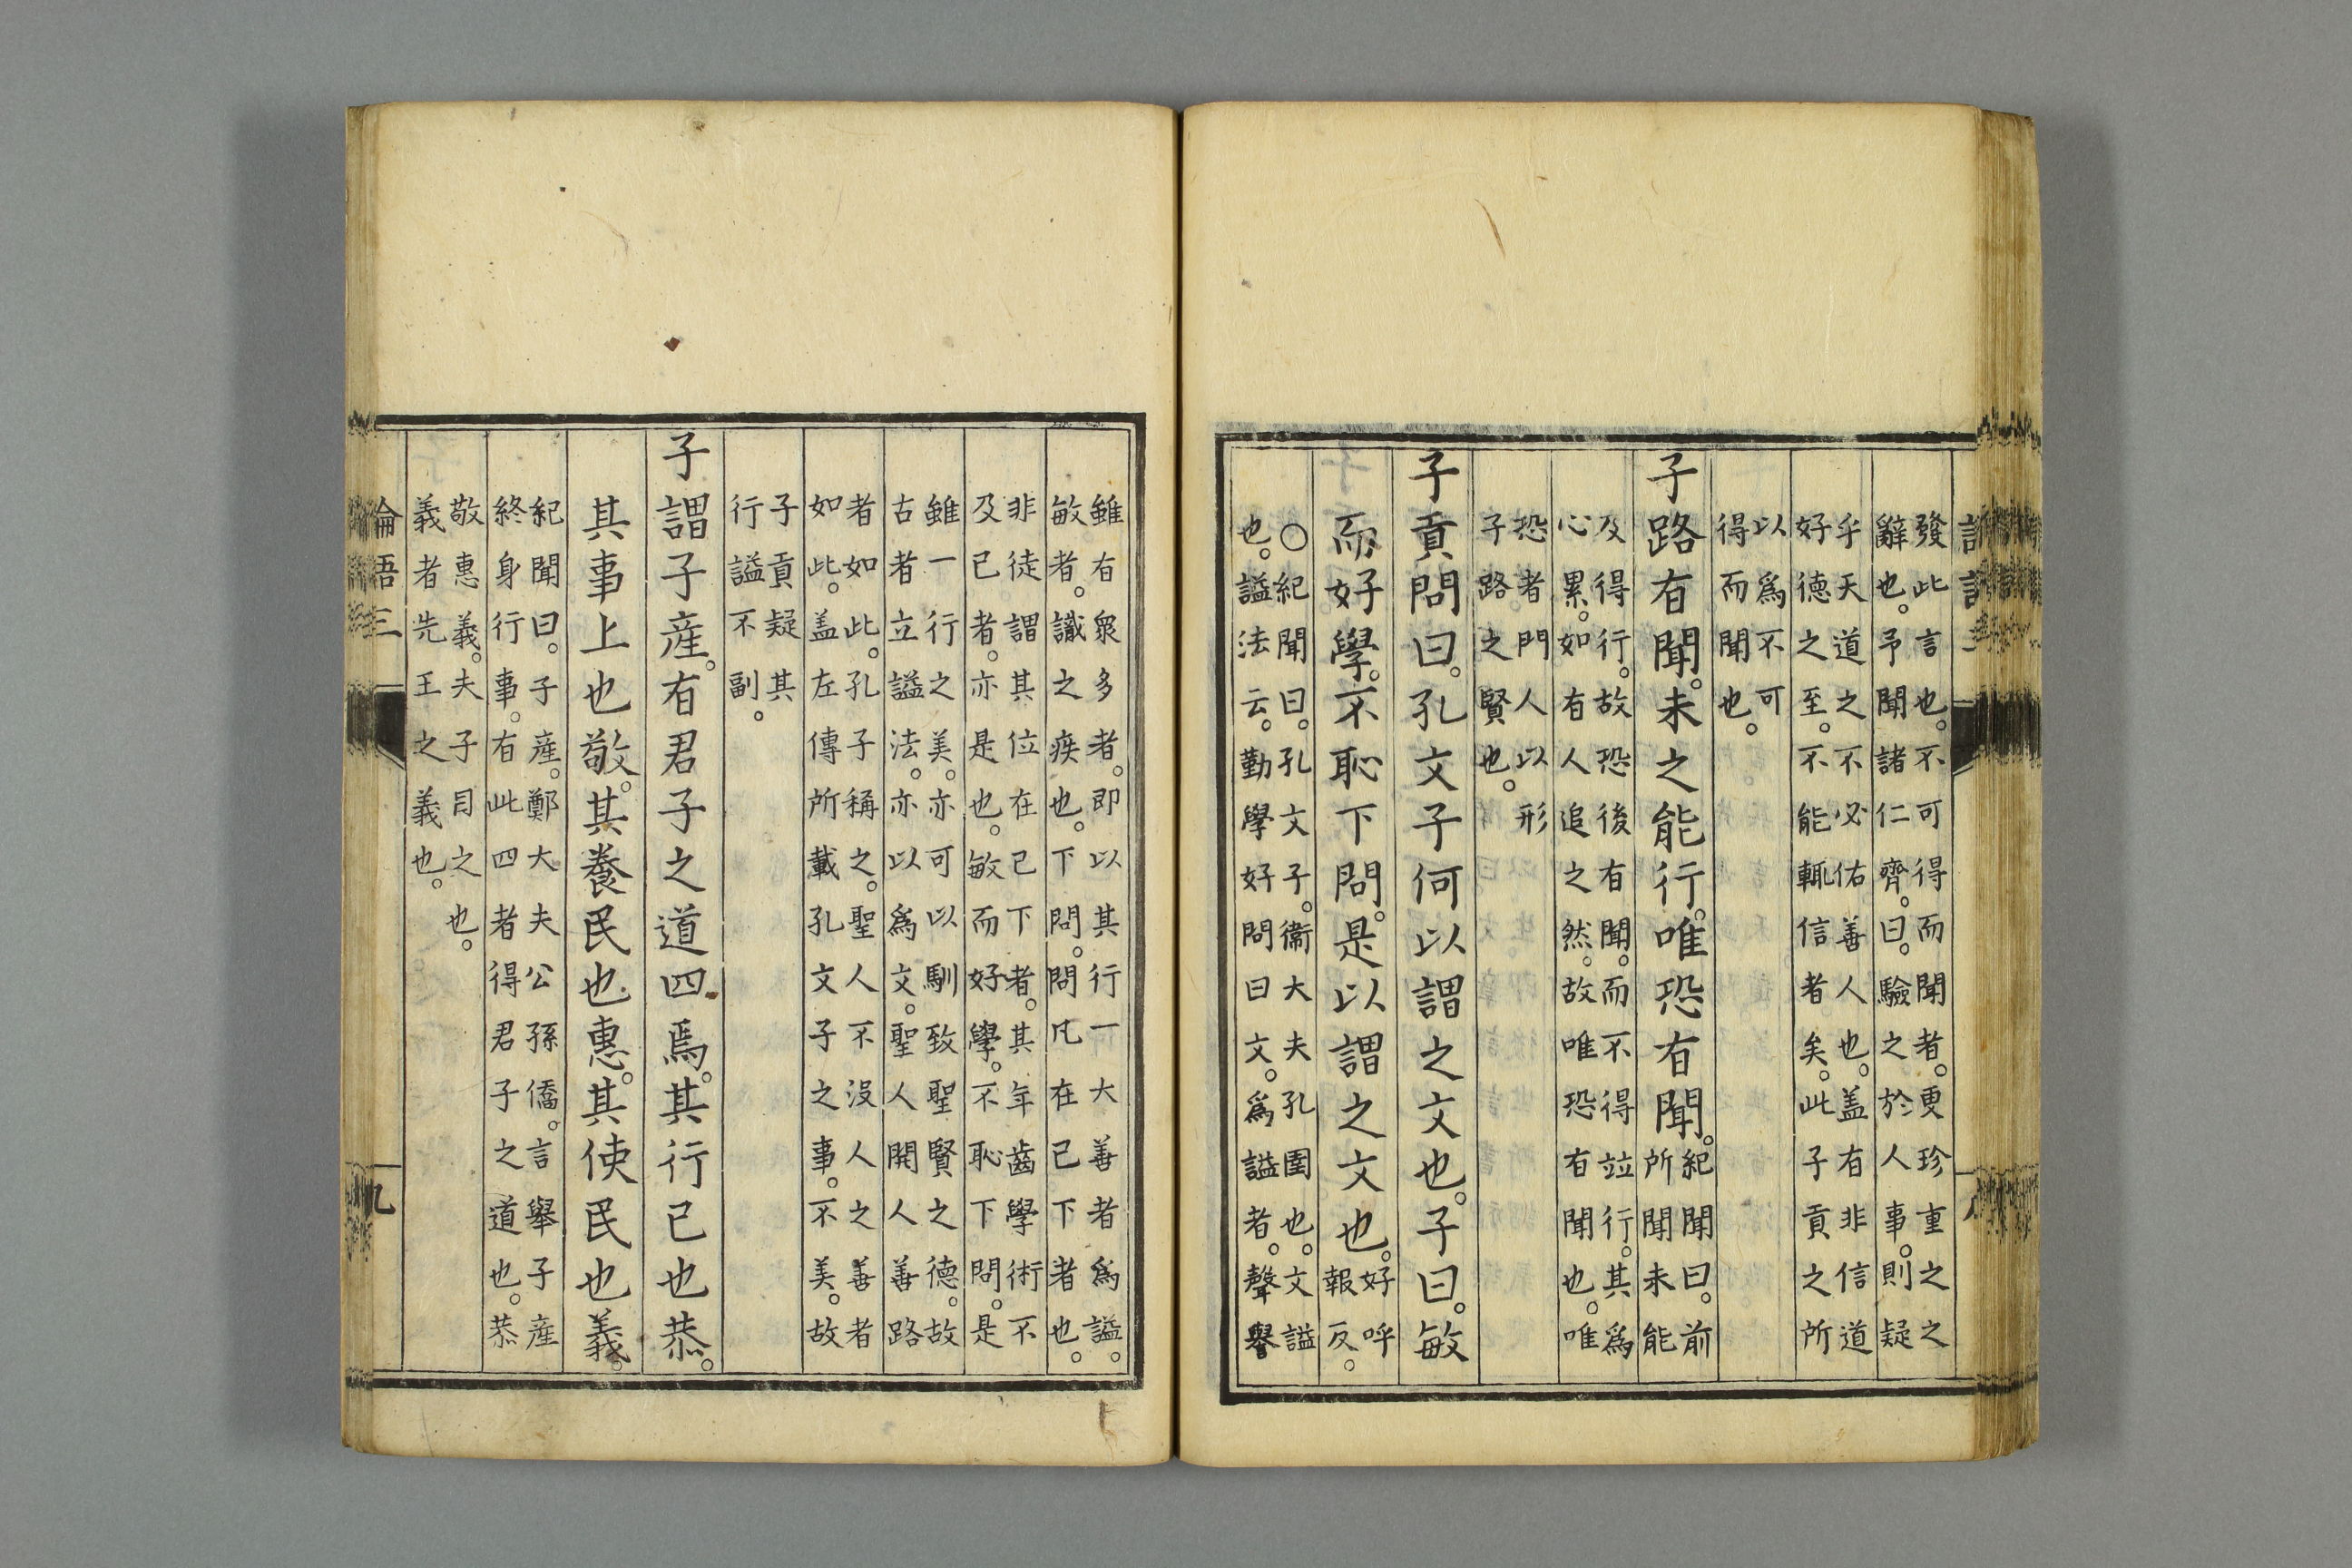 發此言也。不可得而聞者。更珍重之之
辭也。予聞諸仁齊。曰。驗之於人事。則疑
乎天道之不必佑善人也。盖有非信道
好德之至。不能輒信者矣。此子貢之所
以爲不可
得而聞也。
子路有聞。未之能行。唯恐有聞。
紀聞曰。前
所聞未能
及得行。故恐後有聞。而不得竝行。其爲
心累。如有人追之然。故唯恐有聞也。唯
恐者。門人以形
子路之賢也。
子貢問曰。孔文子何以謂之文也。子曰。敏
而好學。不恥下問。是以謂之文也。
好呼
報反。
○紀聞曰。孔文子。衞大夫孔圉也。文謚
也。謚法云。勤學好問曰文。爲謚者。聲譽
雖有衆多者。即以其行一大善者爲謚。
敏者。識之疾也。下問。問凡在己下者也。
非徒謂其位在己下者。其年齒學術不
及己者。亦是也。敏而好學。不恥下問。是
雖一行之美。亦可以馴致聖賢之德。故
古者立謚法。亦以爲文。聖人開人善路
者如此。孔子稱之。聖人不沒人之善者
如此。盖左傳所載孔文子之事。不美。故
子貢疑其
行謚不副。
子謂子産。有君子之道四焉。其行己也恭。
其事上也敬。其養民也惠。其使民也義。
紀聞曰。子産。鄭大夫公孫僑。言舉子産
終身行事。有此四者得君子之道也。恭
敬惠義。夫子目之也。
義者先王之義也。
論語三
九